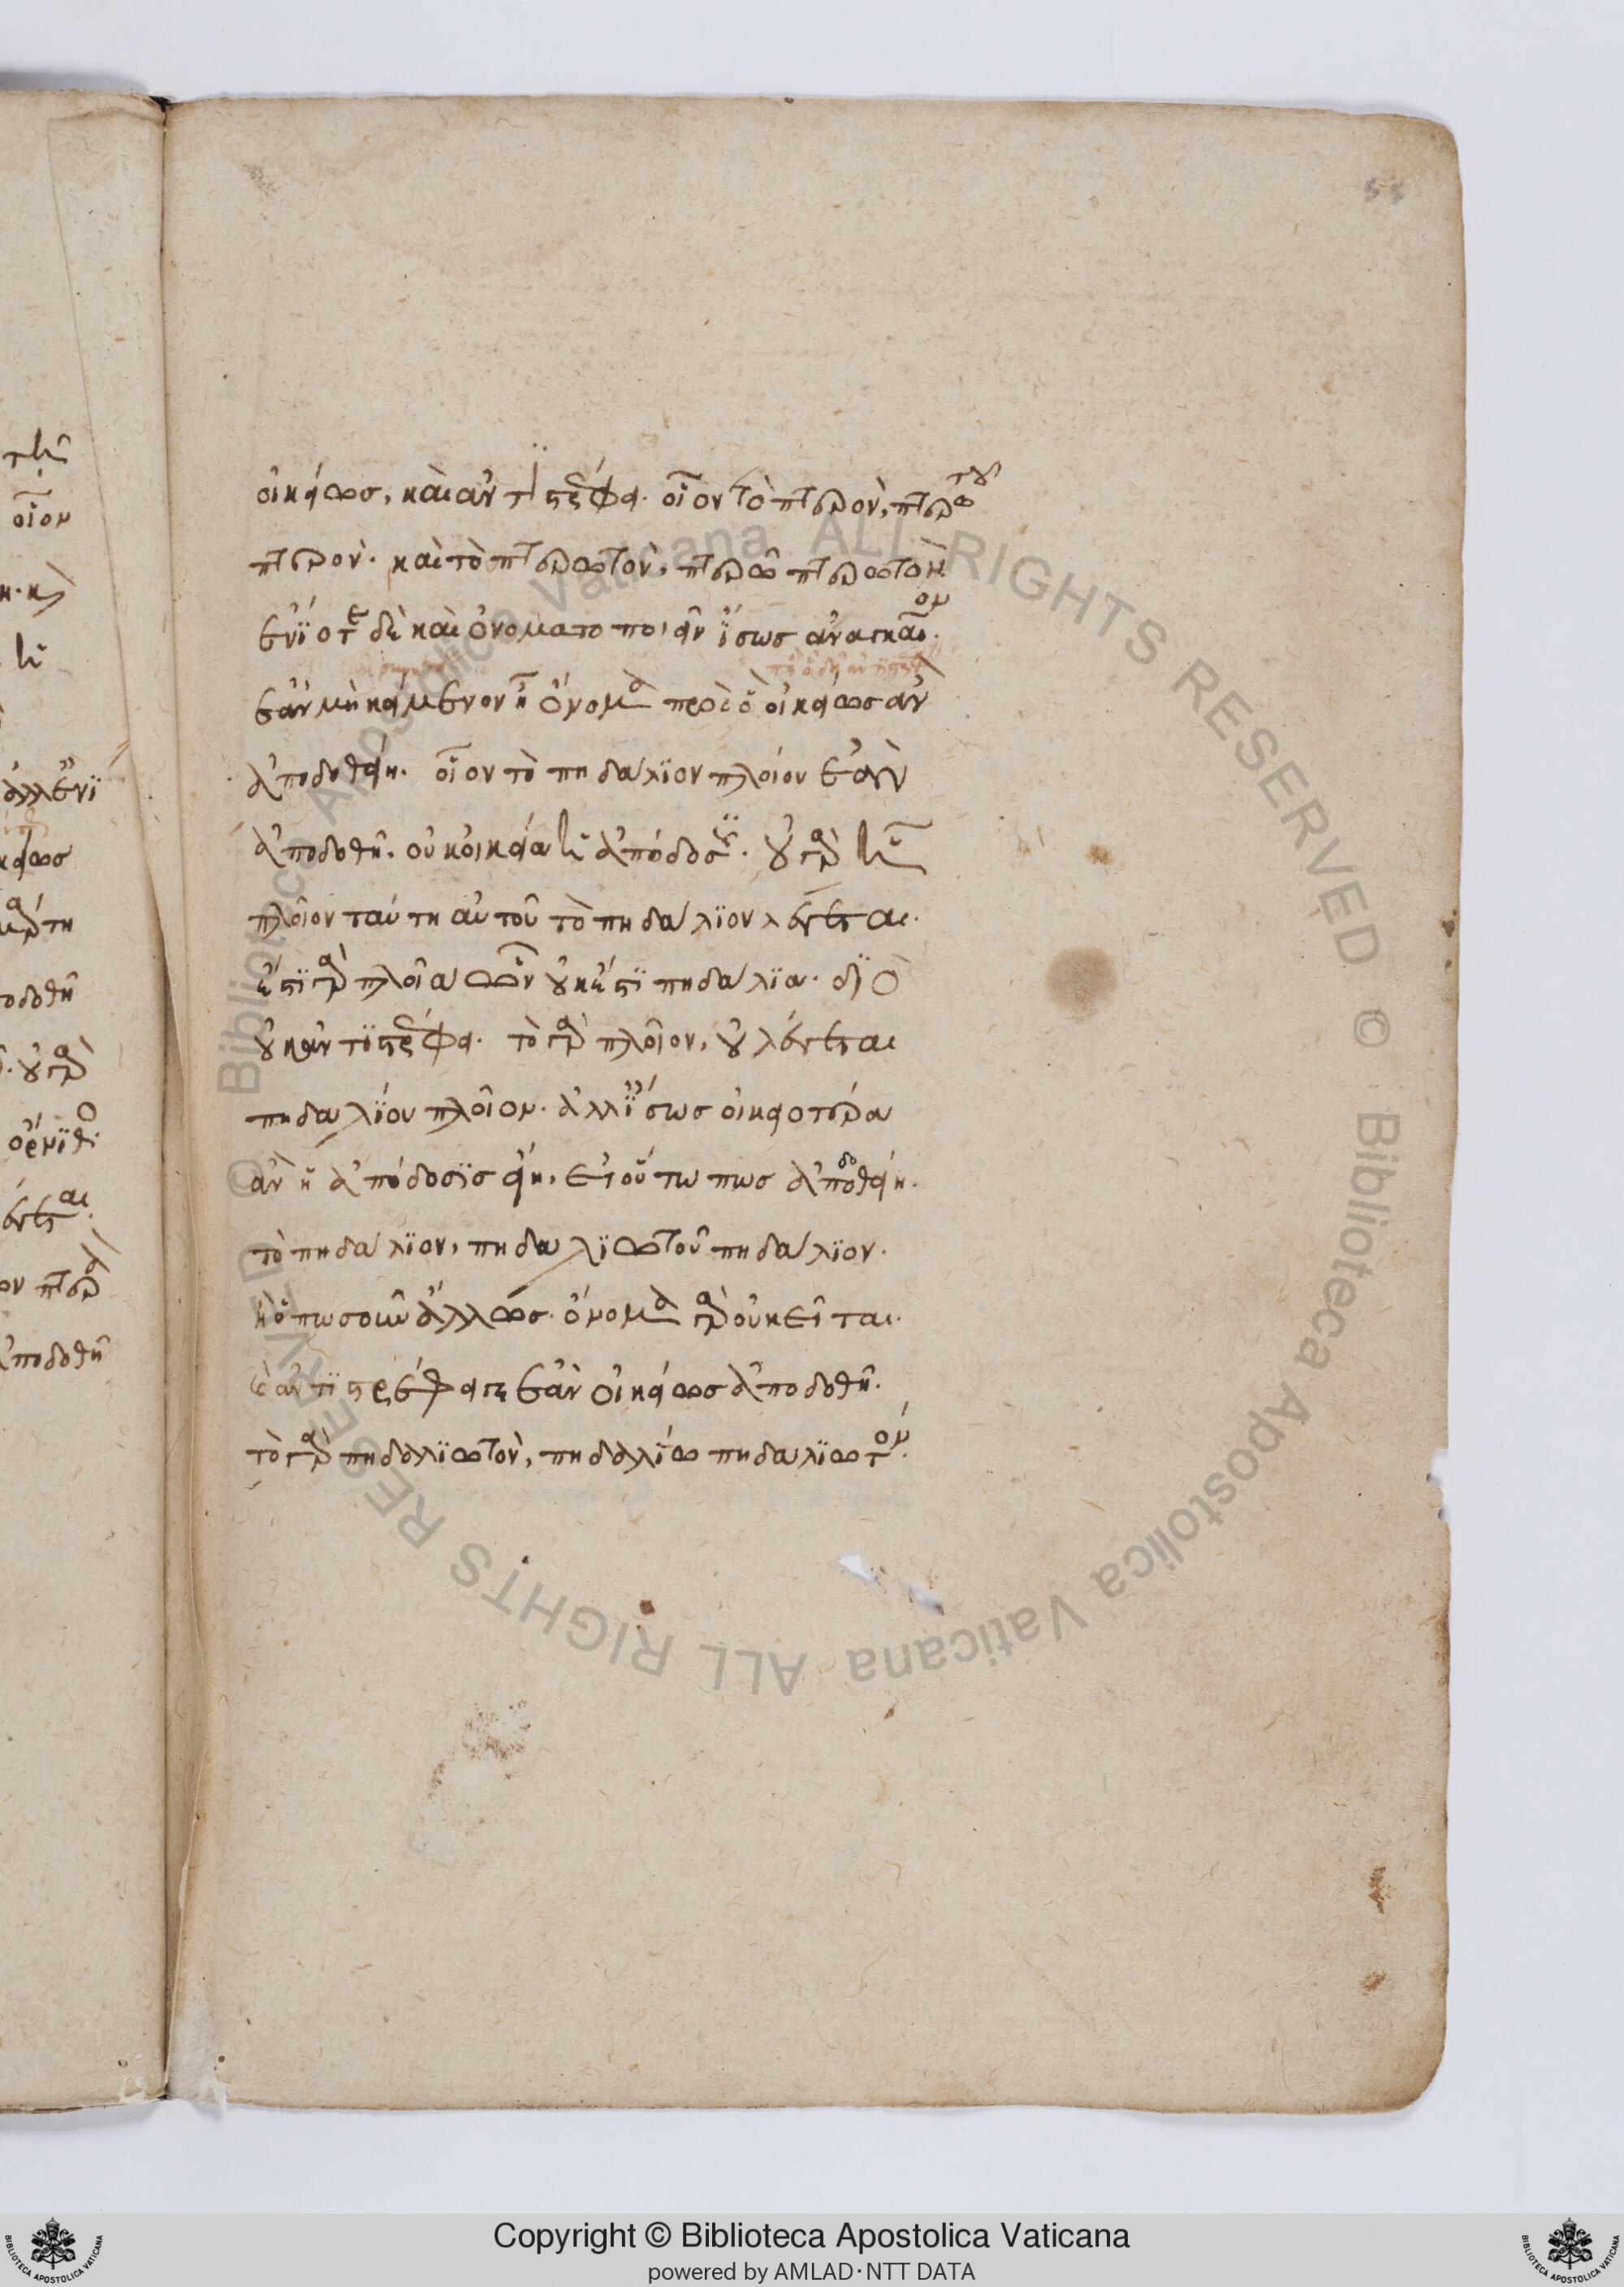 οἰκείως, καὶ ἀντιστρέφει. οἷον τὸ πτερὸν, πτερωτοῦ
πτερὸν· καὶ τὸ πτερωτὸν, πτερῶ πτερωτὸν
ἐνίοτε δὲ καὶ ὀνοματοποιεῖν ἴσως ἀναγκαῖον·
ἐὰν μὴ κείμενον ἦ ὄνομα πρὸς ὃ οἰκείως ἂν
ἀποδοθείη. οἷον τὸ πηδάλιον πλοίου ἐὰν
ἀποδοθῆ. οὐκ οἰκεία ἡ ἀπόδοσις. οὐ γὰρ ἧ
πλοῖον ταύτη αὐτοῦ τὸ πηδάλιον λέγεται.
ἔστι γὰρ πλοῖα ὧν οὐκ ἔστι πηδάλια. διὸ
οὐκ ἀντιστρέφει. τὸ γὰρ πλοῖον, οὐ λέγεται
πηδαλίου πλοῖον. ἀλλ' ἴσως οἰκειοτέρα
ἂν ἡ ἀπόδοσις εἴη, εἰ οὕτω πως ἀποδοθείη.
τὸ πηδάλιον, πηδαλιωτοῦ πηδάλιον.
ἢ ὁπωσοῦν ἄλλως. ὄνομα γὰρ οὐ κεῖται.
καὶ ἀντιστρέφει γε ἐὰν οἰκείως ἀποδοθῆ.
τὸ γὰρ πηδαλιωτὸν, πηδαλίω πηδαλιωτόν.
Copyright © Biblioteca Apostolica Vaticana
powered by AMLAD·NTT DATA